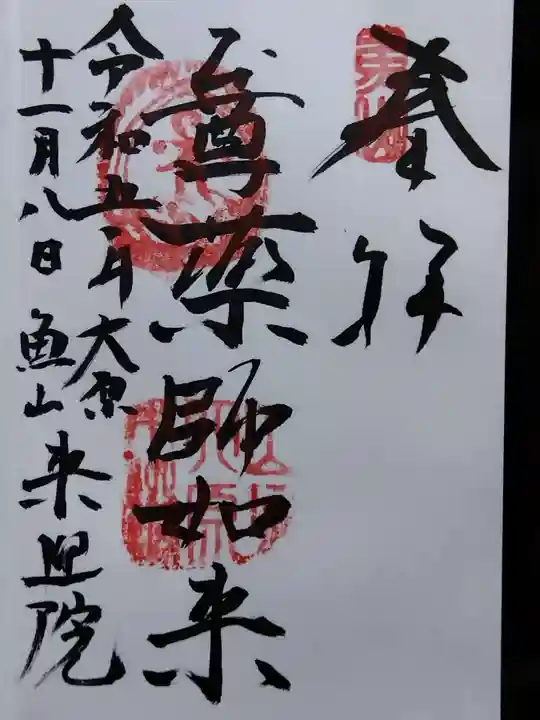 奉拝
尊薬師如来
令和五年大原
十一月八日魚山来迎院